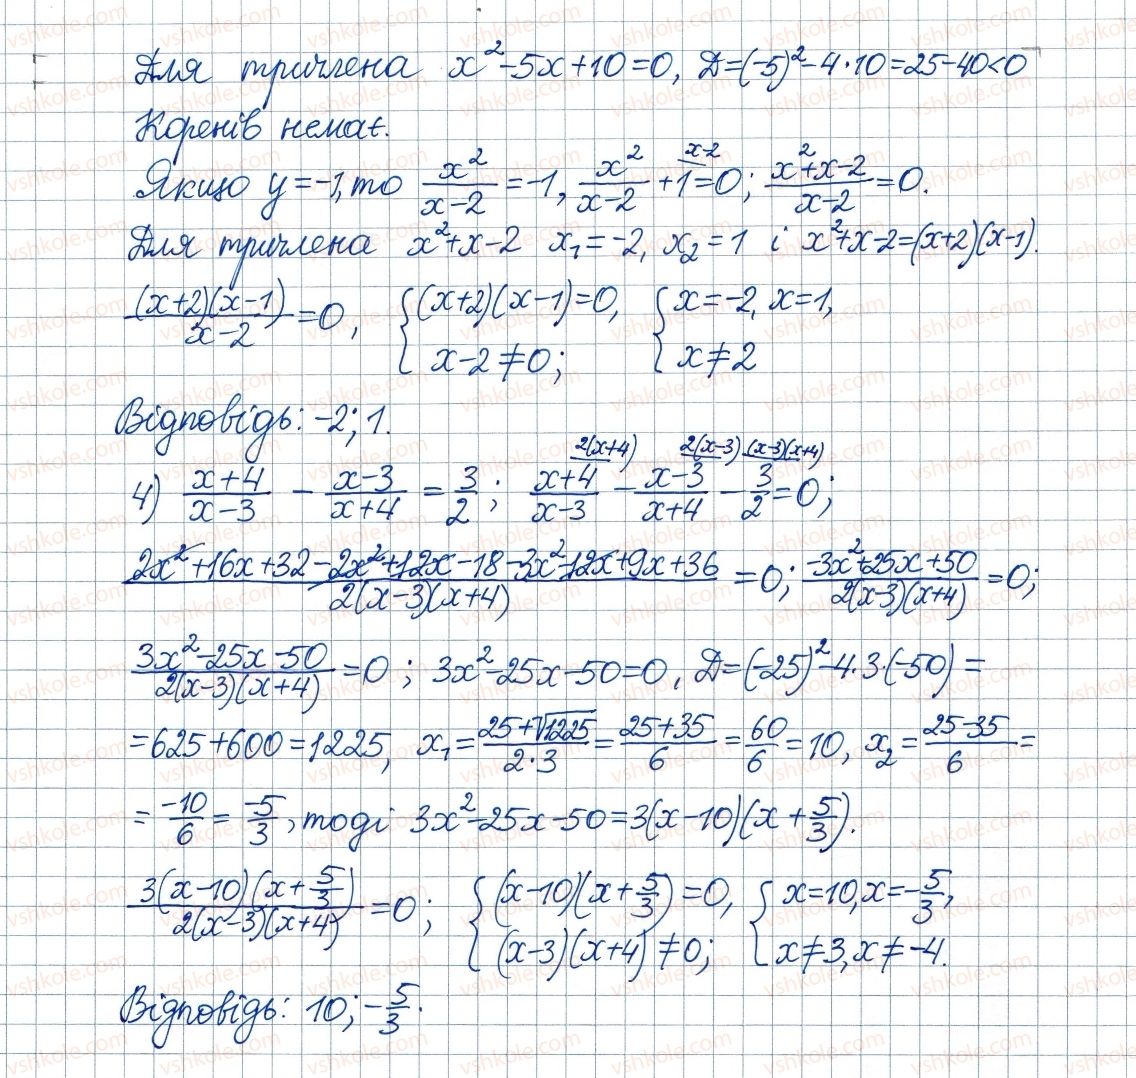 Для тричлена x²-5x+10=0, Д=(-5)²-4·10=25-40<0
Коренів немає.
Якщо y=-1, то x²/(x-2) = -1, x²/(x-2) + 1^(x-2) = 0; (x²+x-2)/(x-2) = 0.
Для тричлена x²+x-2 x₁=-2, x₂=1 і x²+x-2=(x+2)(x-1).
(x+2)(x-1)/(x-2) = 0, { (x+2)(x-1)=0, x-2≠0; { x=-2, x=1, x≠2
Відповідь: -2; 1.
4) (x+4)/(x-3) - (x-3)/(x+4) = 3/2; (x+4)/(x-3)^(2(x+4)) - (x-3)/(x+4)^(2(x-3)) - 3/2^((x-3)(x+4)) = 0;
(2x²+16x+32-2x²+12x-18-3x²-12x+9x+36)/(2(x-3)(x+4)) = 0; (-3x²+25x+50)/(2(x-3)(x+4)) = 0;
(3x²-25x-50)/(2(x-3)(x+4)) = 0; 3x²-25x-50=0, Д=(-25)²-4·3·(-50)=
=625+600=1225, x₁=(25+√1225)/(2·3)=(25+35)/6=60/6=10, x₂=(25-35)/6=
=-10/6=-5/3, тоді 3x²-25x-50=3(x-10)(x+5/3).
3(x-10)(x+5/3)/(2(x-3)(x+4)) = 0; { (x-10)(x+5/3)=0, (x-3)(x+4)≠0; { x=10, x=-5/3, x≠3, x≠-4.
Відповідь: 10; -5/3.